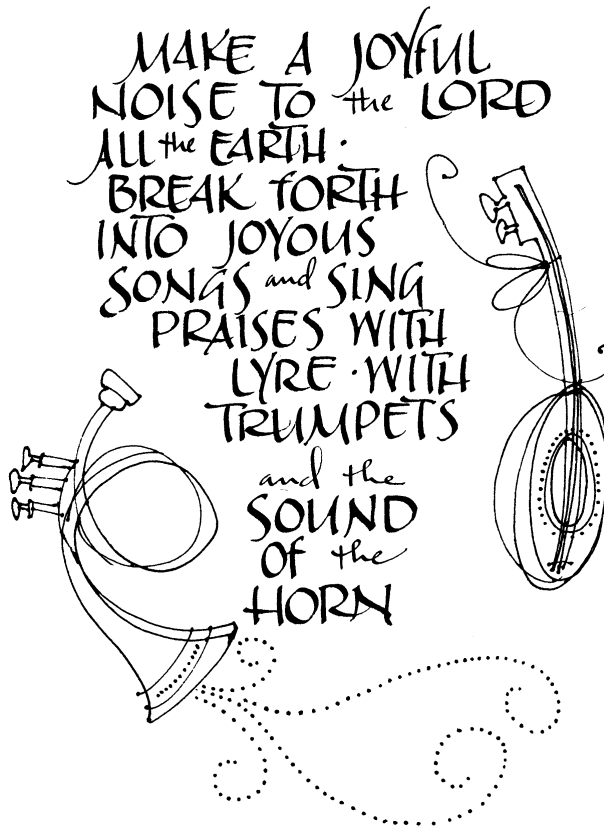 MAKE A JOYfUL
NOISE TO the LORD
ALL the EARTH ·
BREAK fORTH
INTO JOYOUS
SONGS and SING
PRAISES WITH
LYRE · WITH
TRUMPETS
and the
SOUND
Of the
HORN